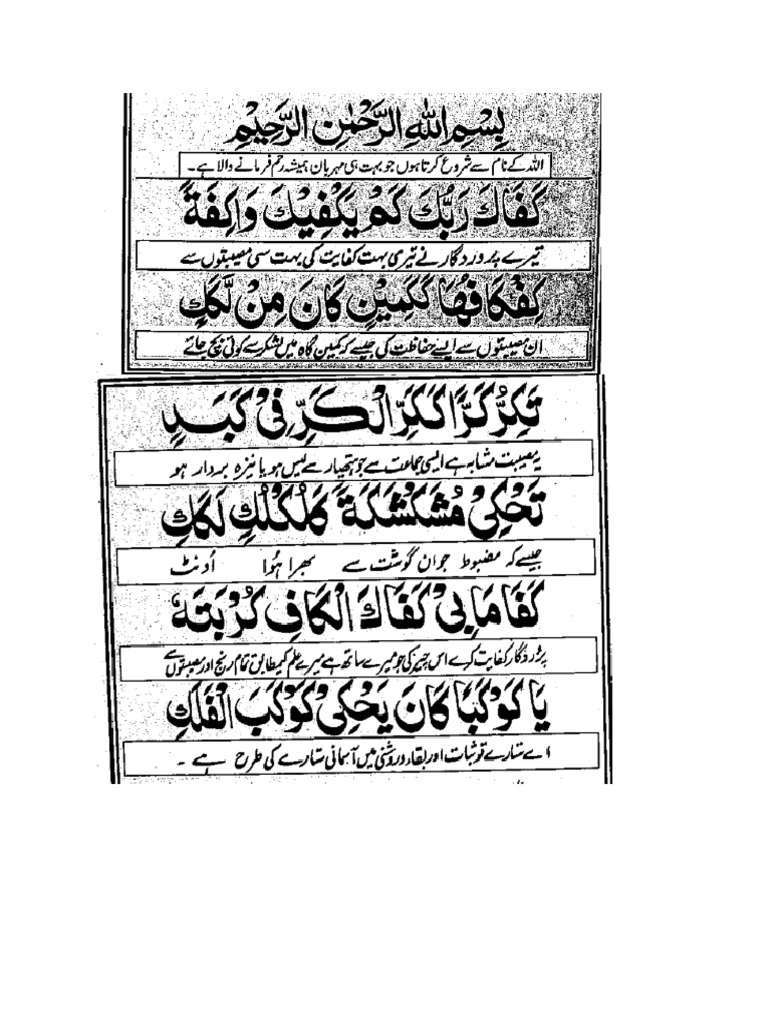 بِسْمِ اللهِ الرَّحْمٰنِ الرَّحِيْمِ
اللہ کے نام سے شروع کرتا ہوں جو بہت ہی مہربان ہمیشہ رحم فرمانے والا ہے۔
كَفَاكَ رَبُّكَ كَمْ يَكْفِيْكَ وَاكِفَةً
تیرے پروردگار نے تیری بہت کفایت کی بہت سی مصیبتوں سے
كِفْكَافُهَا كَكَمِيْنٍ كَانَ مِنْ لَّكَكٍ
ان مصیبتوں سے ایسے حفاظت کی جیسے کہ کمین گاہ میں لشکر سے کوئی بچ جائے
تَكِرُّ كَرًّا كَكَرِّ الْكَرِّ فِیْ كَبَدٍ
یہ مصیبت مشابہ ہے ایسی جماعت سے جو ہتھیار سے لیس ہو یا نیزہ بردار ہو
تَحْكِیْ مُشَكْشَكَةً كَلُكْلُكٍ لَكَكِ
جیسے کہ مضبوط جوان گوشت سے بھرا ہُوا اُونٹ
كَفَاكَ مَا بِیْ كَفَاكَ الْكَافِ كُرْبَتَهٗ
پروردگار کفایت کرے اس چیز کی جو میرے ساتھ ہے میرے علم کیمطابق تمام رنج اور مصیبتوں سے
يَا كَوْكَبًا كَانَ يَحْكِیْ كَوْكَبَ الْفَلَكِ
اے ستارے جو ثبات اور بقاء و روشنی میں آسمانی ستارے کی طرح ہے۔